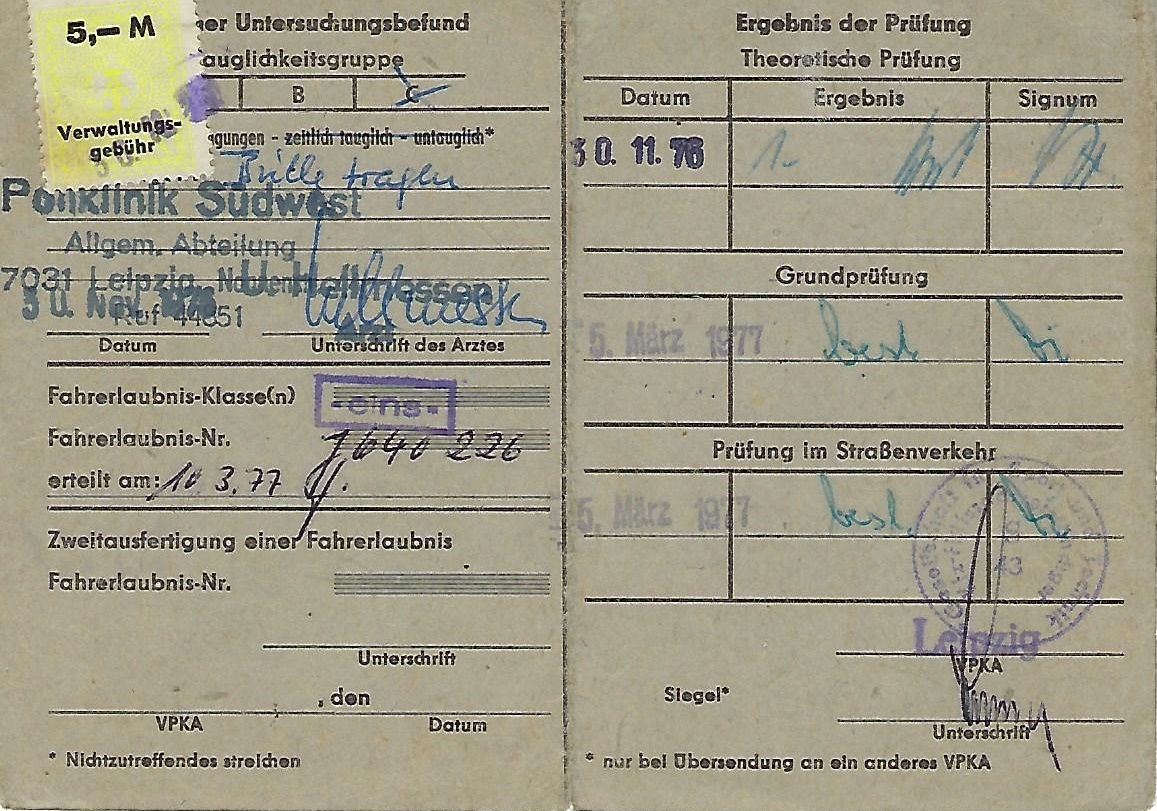 5,– M
Verwaltungs-
gebühr
er Untersuchungsbefund
auglichkeitsgruppe
B C
gungen – zeitlich tauglich – untauglich*
Brille tragen
Poliklinik Südwest
Allgem. Abteilung
7031 Leipzig,
30. Nov. 1976
Ruf 44651
Arzt
Datum Unterschrift des Arztes
Fahrerlaubnis-Klasse(n) -eins-
Fahrerlaubnis-Nr. J 640 226
erteilt am: 10.3.77
Zweitausfertigung einer Fahrerlaubnis
Fahrerlaubnis-Nr.
Unterschrift
, den
VPKA Datum
* Nichtzutreffendes streichen
Ergebnis der Prüfung
Theoretische Prüfung
Datum Ergebnis Signum
30. 11. 76
Grundprüfung
5. März 1977 best.
Prüfung im Straßenverkehr
5. März 1977 best.
Gesellschaft für Sport und Technik
43
Leipzig
VPKA
Siegel*
Unterschrift
* nur bei Übersendung an ein anderes VPKA